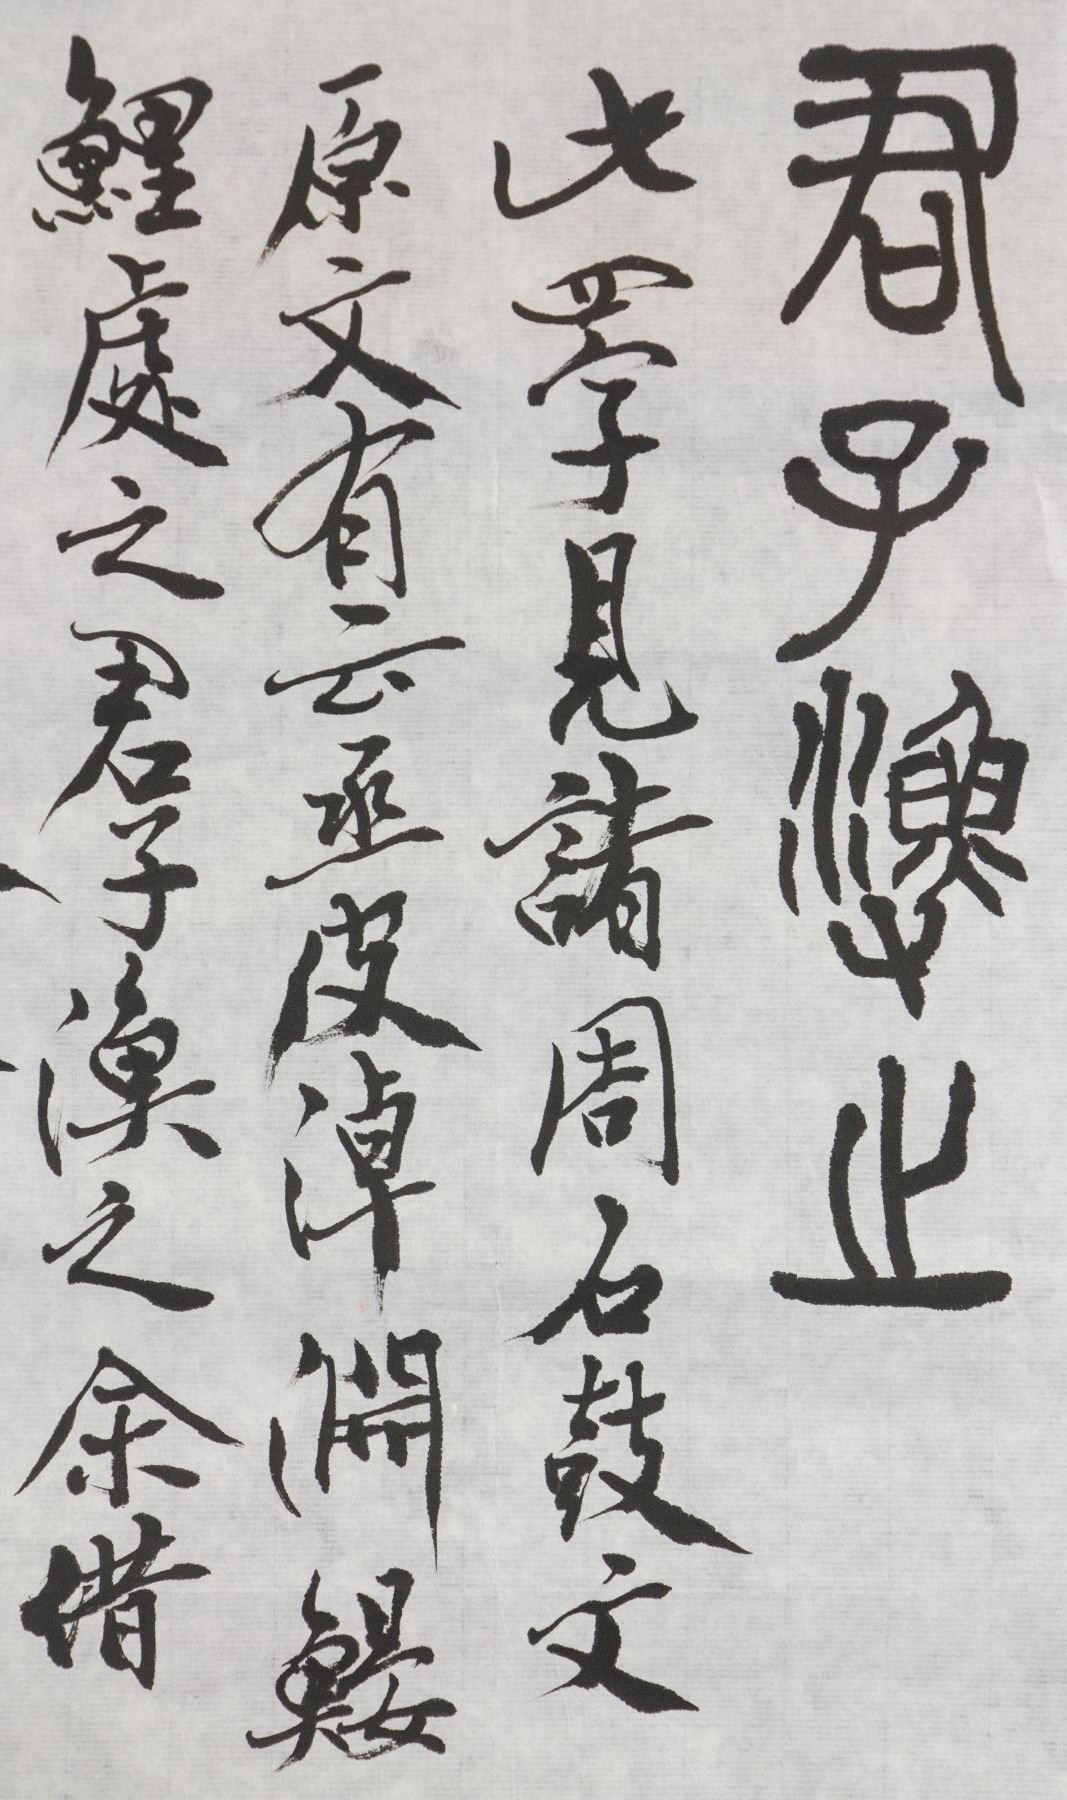 君子漁之
此四字見諸周石鼓文
原文有云丞皮淖淵鰋
鯉處之君子漁之余借